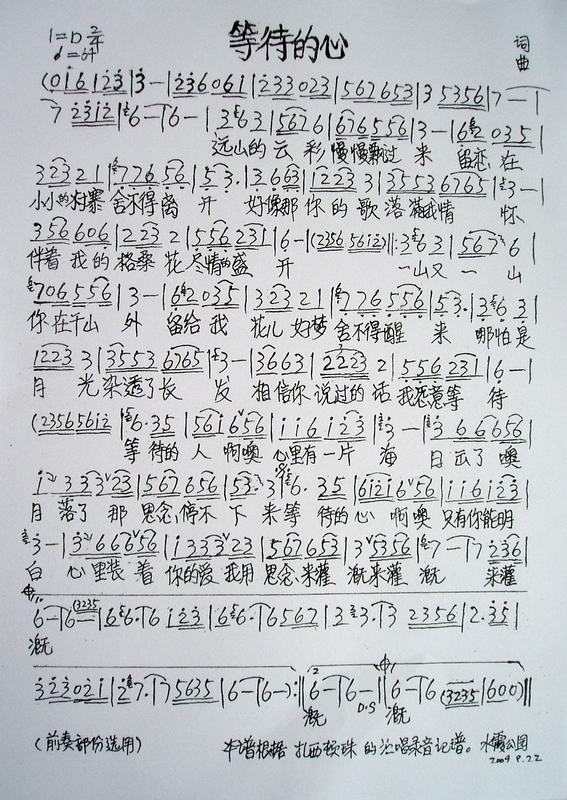 等待的心
1=D 2/4
♩=64
词
曲
(0i6 123|3—|236061|233023|567653|3 5356|7—|
7 2312|6—|6—|3 63|567 6|676556|3—|62 035|
远山的云彩慢慢飘过来 留恋在
32321|776 56|53·|3663|1223 3|3553 6765|3—|
小小的村寨舍不得离开 好像那你的歌落满我情怀
356 606|223 2|556231|6—|(2356 5612)||:3 63|567 6|
伴着我的格桑花尽情的盛开 一山又一山
706556|3—|62035|323 21|776 556|53·|36 3|
你在千山外 留给我花儿好梦舍不得醒来 哪怕是
1223 3|3553 6765|3—|3663|2223 2|556 231|6—|
月光染透了长发 相信你说过的话我愿意等待
(2356 5612|6·35|561656|i i6 i23|3—|3 66656|
等待的人啊噢心里有一片海 日出了噢
i2 33323|567656|53·3|6· 35|6i2i656|i i6 i23|
月落了那思念,停不下来等待的心啊噢只有你能明
3—|3266656|i333323|567653|35356|7—|7 236|
白 心里装着你的爱我用思念来灌溉来灌溉 来灌
6—|6(3235)|66·|6 i23|66·|6567|3 3·|3 2356|2·35|
溉
323021|27·|7 5635|6—|6—):||6—|6—||6—|6(3235|600)||
溉 D.S 溉
(前奏部份选用)
本谱根据扎西顿珠的演唱录音记谱。水霞公园
2009.8.22